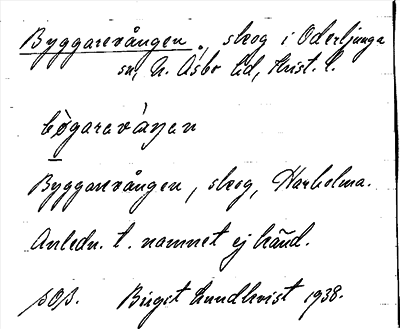 Byggarevången, skog i Oderljunga
sn, N. Åsbo hd, Krist. l.
bøgarevàŋen
Byggarevången, skog, Harholma.
Anledn. t. namnet ej känd.
Birgit Lundkvist 1938.